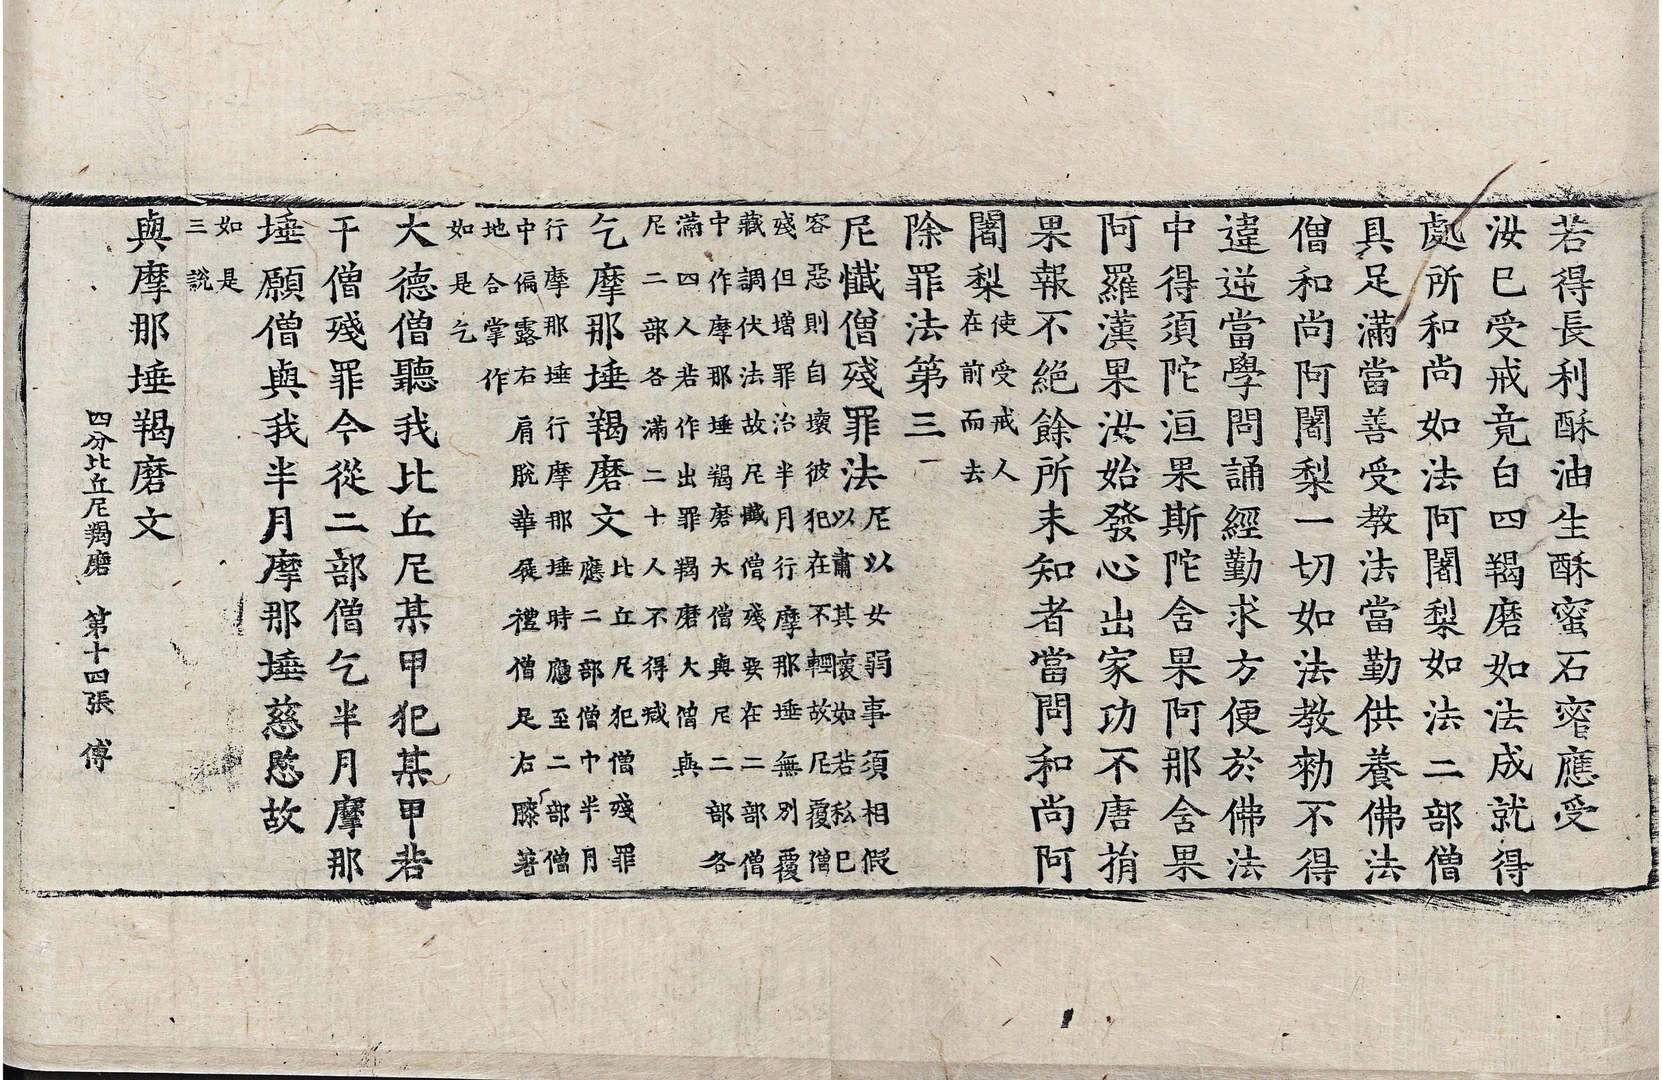 若得長利酥油生酥蜜石蜜應受
汝已受戒竟白四羯磨如法成就得
處所和尚如法阿闍梨如法二部僧
具足滿當善受教法當勤供養佛法
僧和尚阿闍梨一切如法教勑不得
違逆當學問誦經勤求方便於佛法
中得須陀洹果斯陀舍果阿那舍果
阿羅漢果汝始發心出家功不唐捐
果報不絕餘所未知者當問和尚阿
闍梨使受戒人
在前而去
除罪法第三
尼懺僧殘罪法尼以女弱事須相假
以肅其懷如若私已
容惡則自壞彼犯在不輕故尼覆僧
殘但增罪治半月行摩那埵無別覆
藏調伏法故尼懺僧殘要在二部僧
中作摩那埵羯磨大僧與尼二部各
滿四人若作出罪羯磨大僧與
尼二部各滿二十人不得減
乞摩那埵羯磨文比丘尼犯僧殘罪
應二部僧中半月
行摩那埵行摩那埵時應至二部僧
中偏露右肩脫革屣禮僧足右膝著
地合掌作
如是乞
大德僧聽我比丘尼某甲犯某甲若
干僧殘罪今從二部僧乞半月摩那
埵願僧與我半月摩那埵慈愍故
如是
三說
與摩那埵羯磨文
四分比丘尼羯磨 第十四張 傅